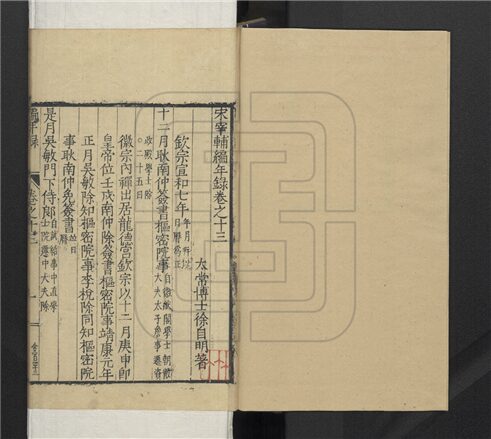 宋宰輔編年錄卷之十三
太常博士徐自明著
欽宗宣和七年
十二月耿南仲簽書樞密院事
二十五日
徽宗內禪出居龍德宮欽宗以十二月庚申即
皇帝位壬戌南仲除簽書樞密院事靖康元年
正月吳敏除知樞密院事李梲除同知樞密院
事耿南仲免簽書
是月吳敏門下侍郎